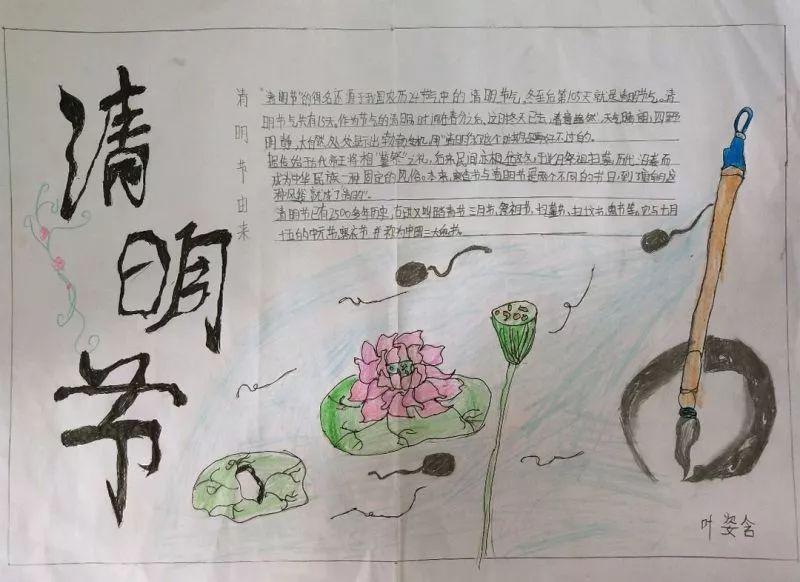 清明节
清明节由来
"清明节"的得名还源于我国农历24节气中的清明节气。冬至后第105天就是清明节气。清
明节气共有15天。作为节气的清明,时间在春分之后。这时冬天已去,春意盎然,天气晴朗,四野
明静,大自然处处显示出勃勃生机。用"清明"称这个时期是再好不过的。
据传始于古代帝王将相"墓祭"之礼,后来民间亦相仿效,于此日祭祖扫墓,历代沿袭而
成为中华民族一种固定的风俗。本来,寒食节与清明节是两个不同的节日,到
清明节已有2500多年历史,古时又叫踏青节、三月节、祭祖节、扫墓节、扫坟节、鬼节等。它与十月
十五的中元节,寒衣节并称为中国三大鬼节。
叶姿含